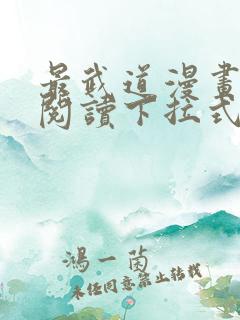 最武道漫畫
閱讀下拉式
鴻一茵
未经同意禁止转载